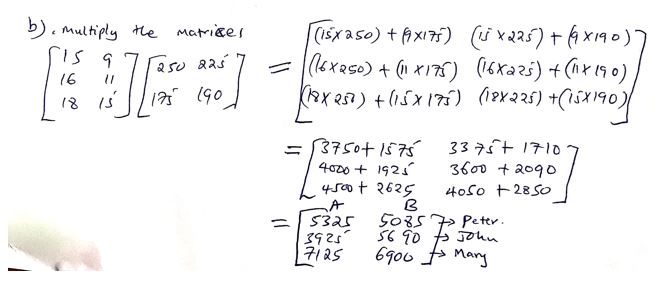 b). multiply the matrices
[15 9
16 11
18 15] [250 225
175 190]
= [(15x250) + (9x175) (15x225) + (9x190)
(16x250) + (11x175) (16x225) + (11x190)
(18x250) + (15x175) (18x225) + (15x190)]
= [3750+1575 3375+1710
4000+1925 3600+2090
4500+2625 4050+2850]
A B
= [5325 5085 → Peter.
3925 5690 → John
7125 6900] → Mary